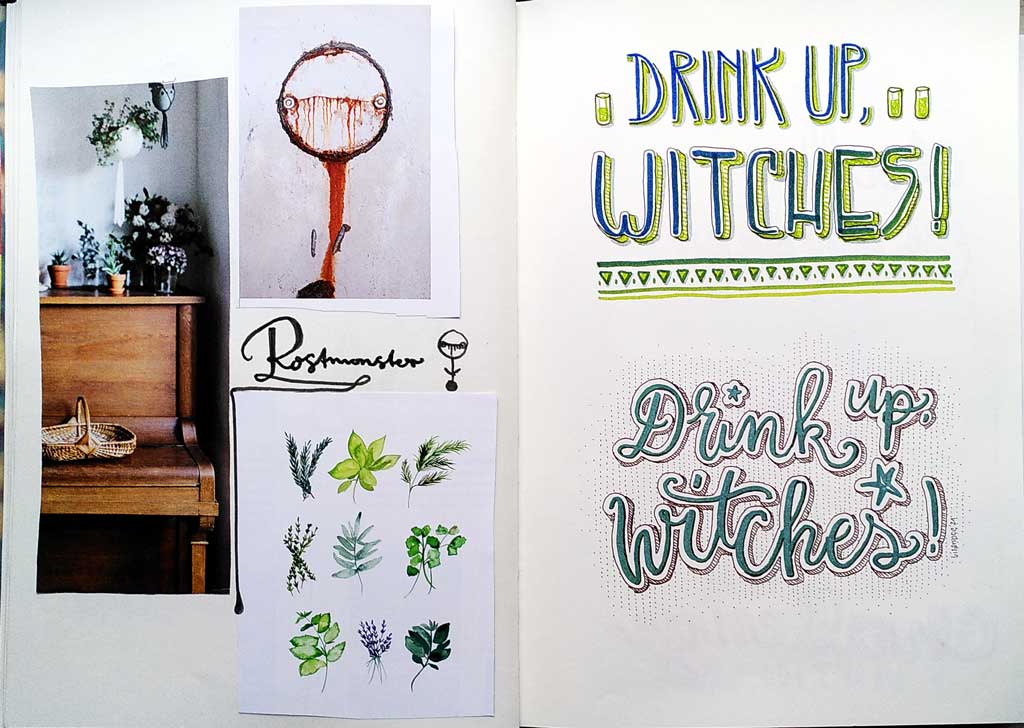 Rostmonster
DRINK UP,
WITCHES!
Drink up,
witches!